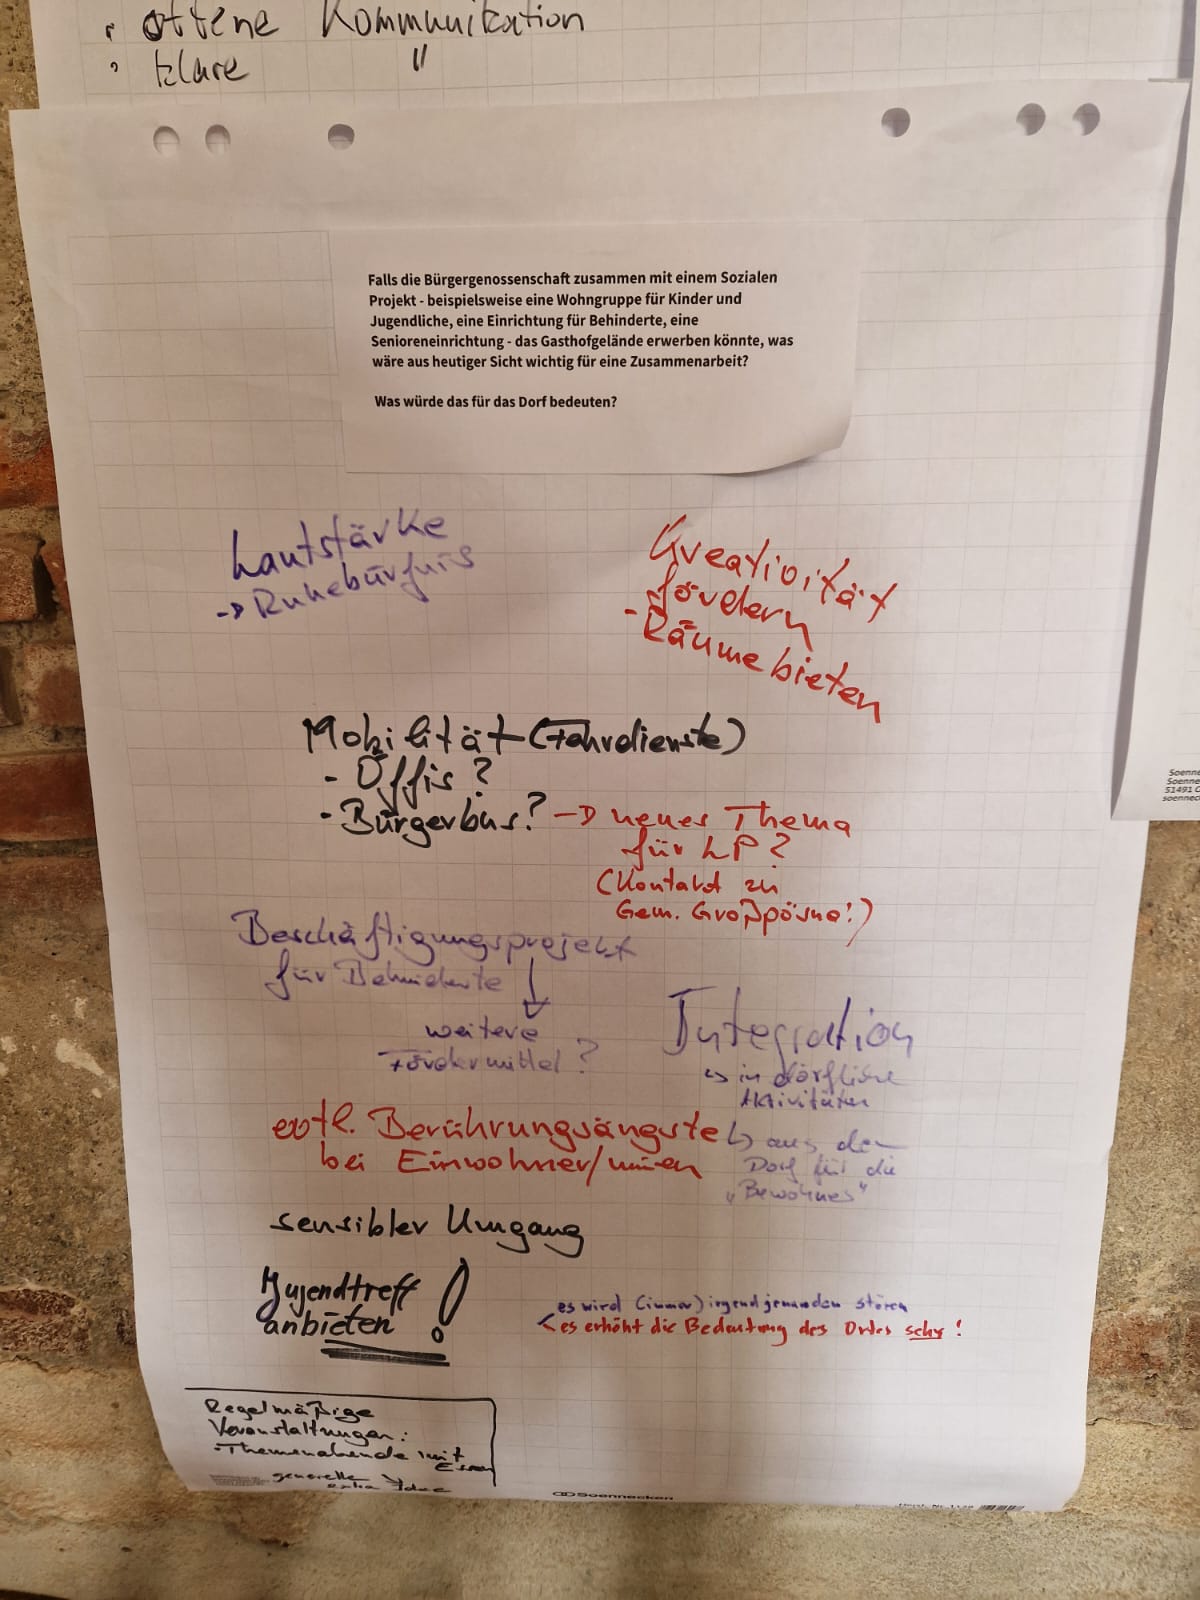 • offene Kommunikation
• klare "
Falls die Bürgergenossenschaft zusammen mit einem Sozialen
Projekt - beispielsweise eine Wohngruppe für Kinder und
Jugendliche, eine Einrichtung für Behinderte, eine
Senioreneinrichtung - das Gasthofgelände erwerben könnte, was
wäre aus heutiger Sicht wichtig für eine Zusammenarbeit?
Was würde das für das Dorf bedeuten?
Lautstärke
-> Ruhebürfnis
Kreativität
fördern
- Räume bieten
Mobilität (Fahrdienste)
- Öffis?
- Bürgerbus? -> neues Thema
für LP?
(Kontakt zu
Gem. Großpösna!)
Beschäftigungsprojekt
für Behinderte
↓
weitere
Fördermittel?
Integration
↳ in dörfliche
Aktivitäten
↳ aus dem
Dorf für die
"Bewohner"
evtl. Berührungsängste
bei Einwohner/innen
sensibler Umgang
Jugendtreff
anbieten !
es wird (immer) irgendjemanden stören
< es erhöht die Bedeutung des Ortes sehr !
Regelmäßige
Veranstaltungen:
• Themenabende mit
Essen
generelle
extra Idee
Soennecken
Soenne
Soenne
51491 O
soennec